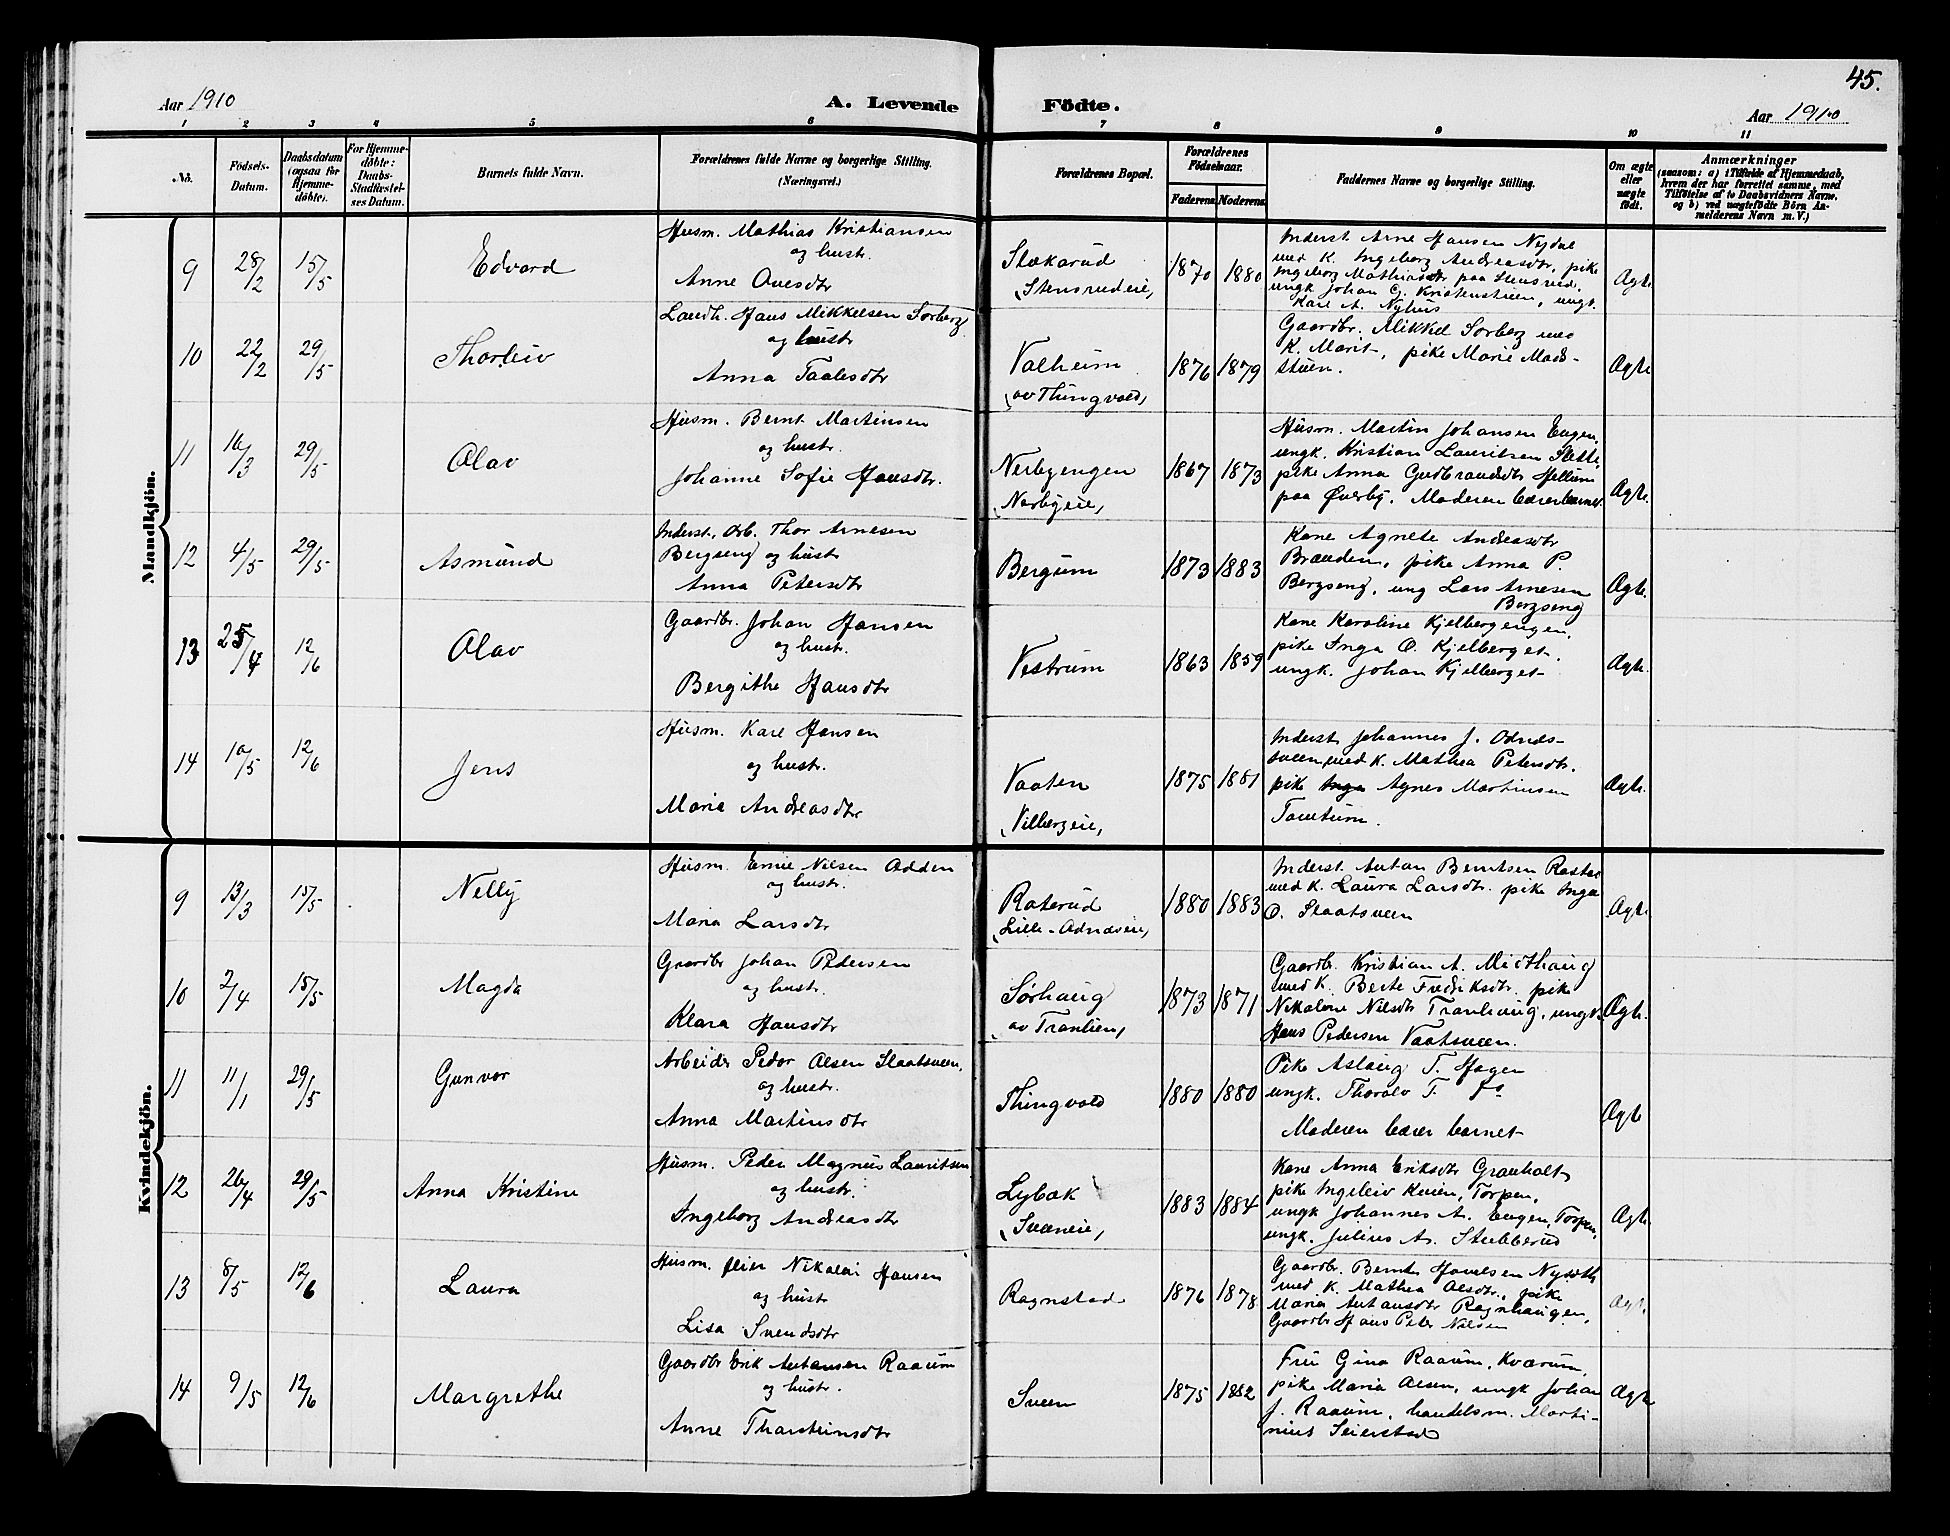 45.
Aar 1910 A. Levende Födte. Aar 1910
1 2 3 4 5 6 7 8 9 10 11
No.
Födsels-Datum.
Daabsdatum (ogsaa for Hjemme-döbte).
For Hjemme-döbte: Daabs-Stadfæstel-ses Datum.
Barnets fulde Navn.
Forældrenes fulde Navne og borgerlige Stilling.
(Næringsvei.)
Forældrenes Bopæl.
Forældrenes Födselsaar.
Faderens Moderens
Faddernes Navne og borgerlige Stilling.
Om ægte eller uægte födt.
Anmærkninger
(saasom: a) i Tilfælde af Hjemmedaab,
hvem der har forrettet samme, med
Tilföielse af to Daabsvidners Navne,
og b) ved uægtefödte Börn An-
melderens Navn m. V.)
Mandkjön.
9 28/2 15/5 Edvard
Husm. Mathias Kristiansen
og hustr.
Anne Ouesdtr
Stækarud
(Stensrudeie)
1870 1880
Inderst Arne Hansen Nydal
med K. Ingeborg Andreasdtr, pike
Ingeborg Mathiasdtr paa Stensrud,
ungk Johan G. Kristenstuen, ungk.
Karl A. Nyhus
Ægte.
10 22/2 29/5 Thorleiv
Landh. Hans Mikkelsen Sorberg
og hustr
Anna Taalesdtr
Valheim
(av Thingvold)
1876 1879
Gaardbr. Mikkel Sorberg med
K. Marit, pike Marie Mads-
stuen.
Ægte
11 16/3 29/5 Olav
Husm. Bernt Martinsen
og hustr.
Johanne Sofie Hansdtr.
Nerbyengen
(Nerbyeie)
1867 1873
Husm. Martin Johansen Engen,
ungk. Kristian Lauritsen Slette,
pike Anna Gudbrandsdtr Hellum
paa Øverby. Moderen bærer barnet.
Ægte.
12 4/5 29/5 Asmund
Inderst, Arb. Thor Arnesen
Bergseng og hustr
Anna Petersdtr
Bergum
1873 1883
Kone Agnete Andreasdtr
Brænden, pike Anna P.
Bergseng, ung Lars Arnesen
Bergseng
Ægte.
13 25/4 12/6 Olav
Gaardbr. Johan Hansen
og hustr.
Bergithe Hansdtr
Vestrum
1863 1859
Kone Karoline Kjelbergengen,
pike Inga O. Kjelberget.
ungk. Johan Kjelberget
Ægte.
14 10/5 12/6 Jens
Husm. Karl Hansen
og hustr.
Maria Andreasdtr
Vaaten
(Vilbergeie)
1875 1881
Inderst Johannes J. Odnæs-
sveen, med K. Mathea Petersdtr.
pike Agnes Martinsen
Tomtum.
Ægte.
Kvindekjön.
9 13/3 15/5 Nelly
Husm. Emil Nilsen Odden
og hustr.
Maria Larsdtr
Roterud
(Lille-Odnæseie)
1880 1883
Inderst Anton Berntsen
med K. Laura Larsdtr. pike Inga
O. Slaatsveen
Ægte.
10 2/4 15/5 Magda
Gaardbr Johan Pedersen
og hustr.
Klara Hansdtr
Sørhaug
(av Tranlien)
1873 1871
Gaardb. Kristian A. Midthaug
med K. Berte Fredriksdtr. pike
Nikoline Nilsdtr Tranhaug, ungk.
Hans Pedersen Vaatsveen.
Ægte.
11 11/1 29/5 Gunvor
Arbeider Peder Olsen Slaatsveen,
og hustr.
Anna Martinsdtr
Thingvold
1880 1880
Pike Aslaug T. Hagen
ungk. Thoralv T. do
Moderen bærer barnet
Ægte
12 26/4 29/5 Anna Kristine
Husm. Peder Magnus Lauritsen
og hustr.
Ingeborg Andreasdtr
Lybæk
(Sveneie)
1883 1884
Kone Anna Eriksdtr Granholt,
pike Ingeleiv Torpen,
ungk Johannes A. Engen, Torpen,
ungk. Julius A. Stubberud
Ægte.
13 8/5 12/6 Laura
Husm. Peier Nikolai Hansen
og hustr
Lisa Svendsdtr
Rognstad
1876 1878
Gaardbr. Bernt Hansen
med K. Mathea Olsdtr., pike
Maria Antonsdtr Rognhaugen,
Gaardbr Hans Peter Nilsen
Ægte.
14 9/5 12/6 Margrethe
Gaardbr Erik Antonsen Raaum
og hustr.
Anne Thorsteinsdtr
Sveen
1875 1882
Fru Gina Raaum, Kværum,
pike Maria Olsen, ungk Johan
J. Raaum, handelsm. Marti-
nius Seierstad
Ægte